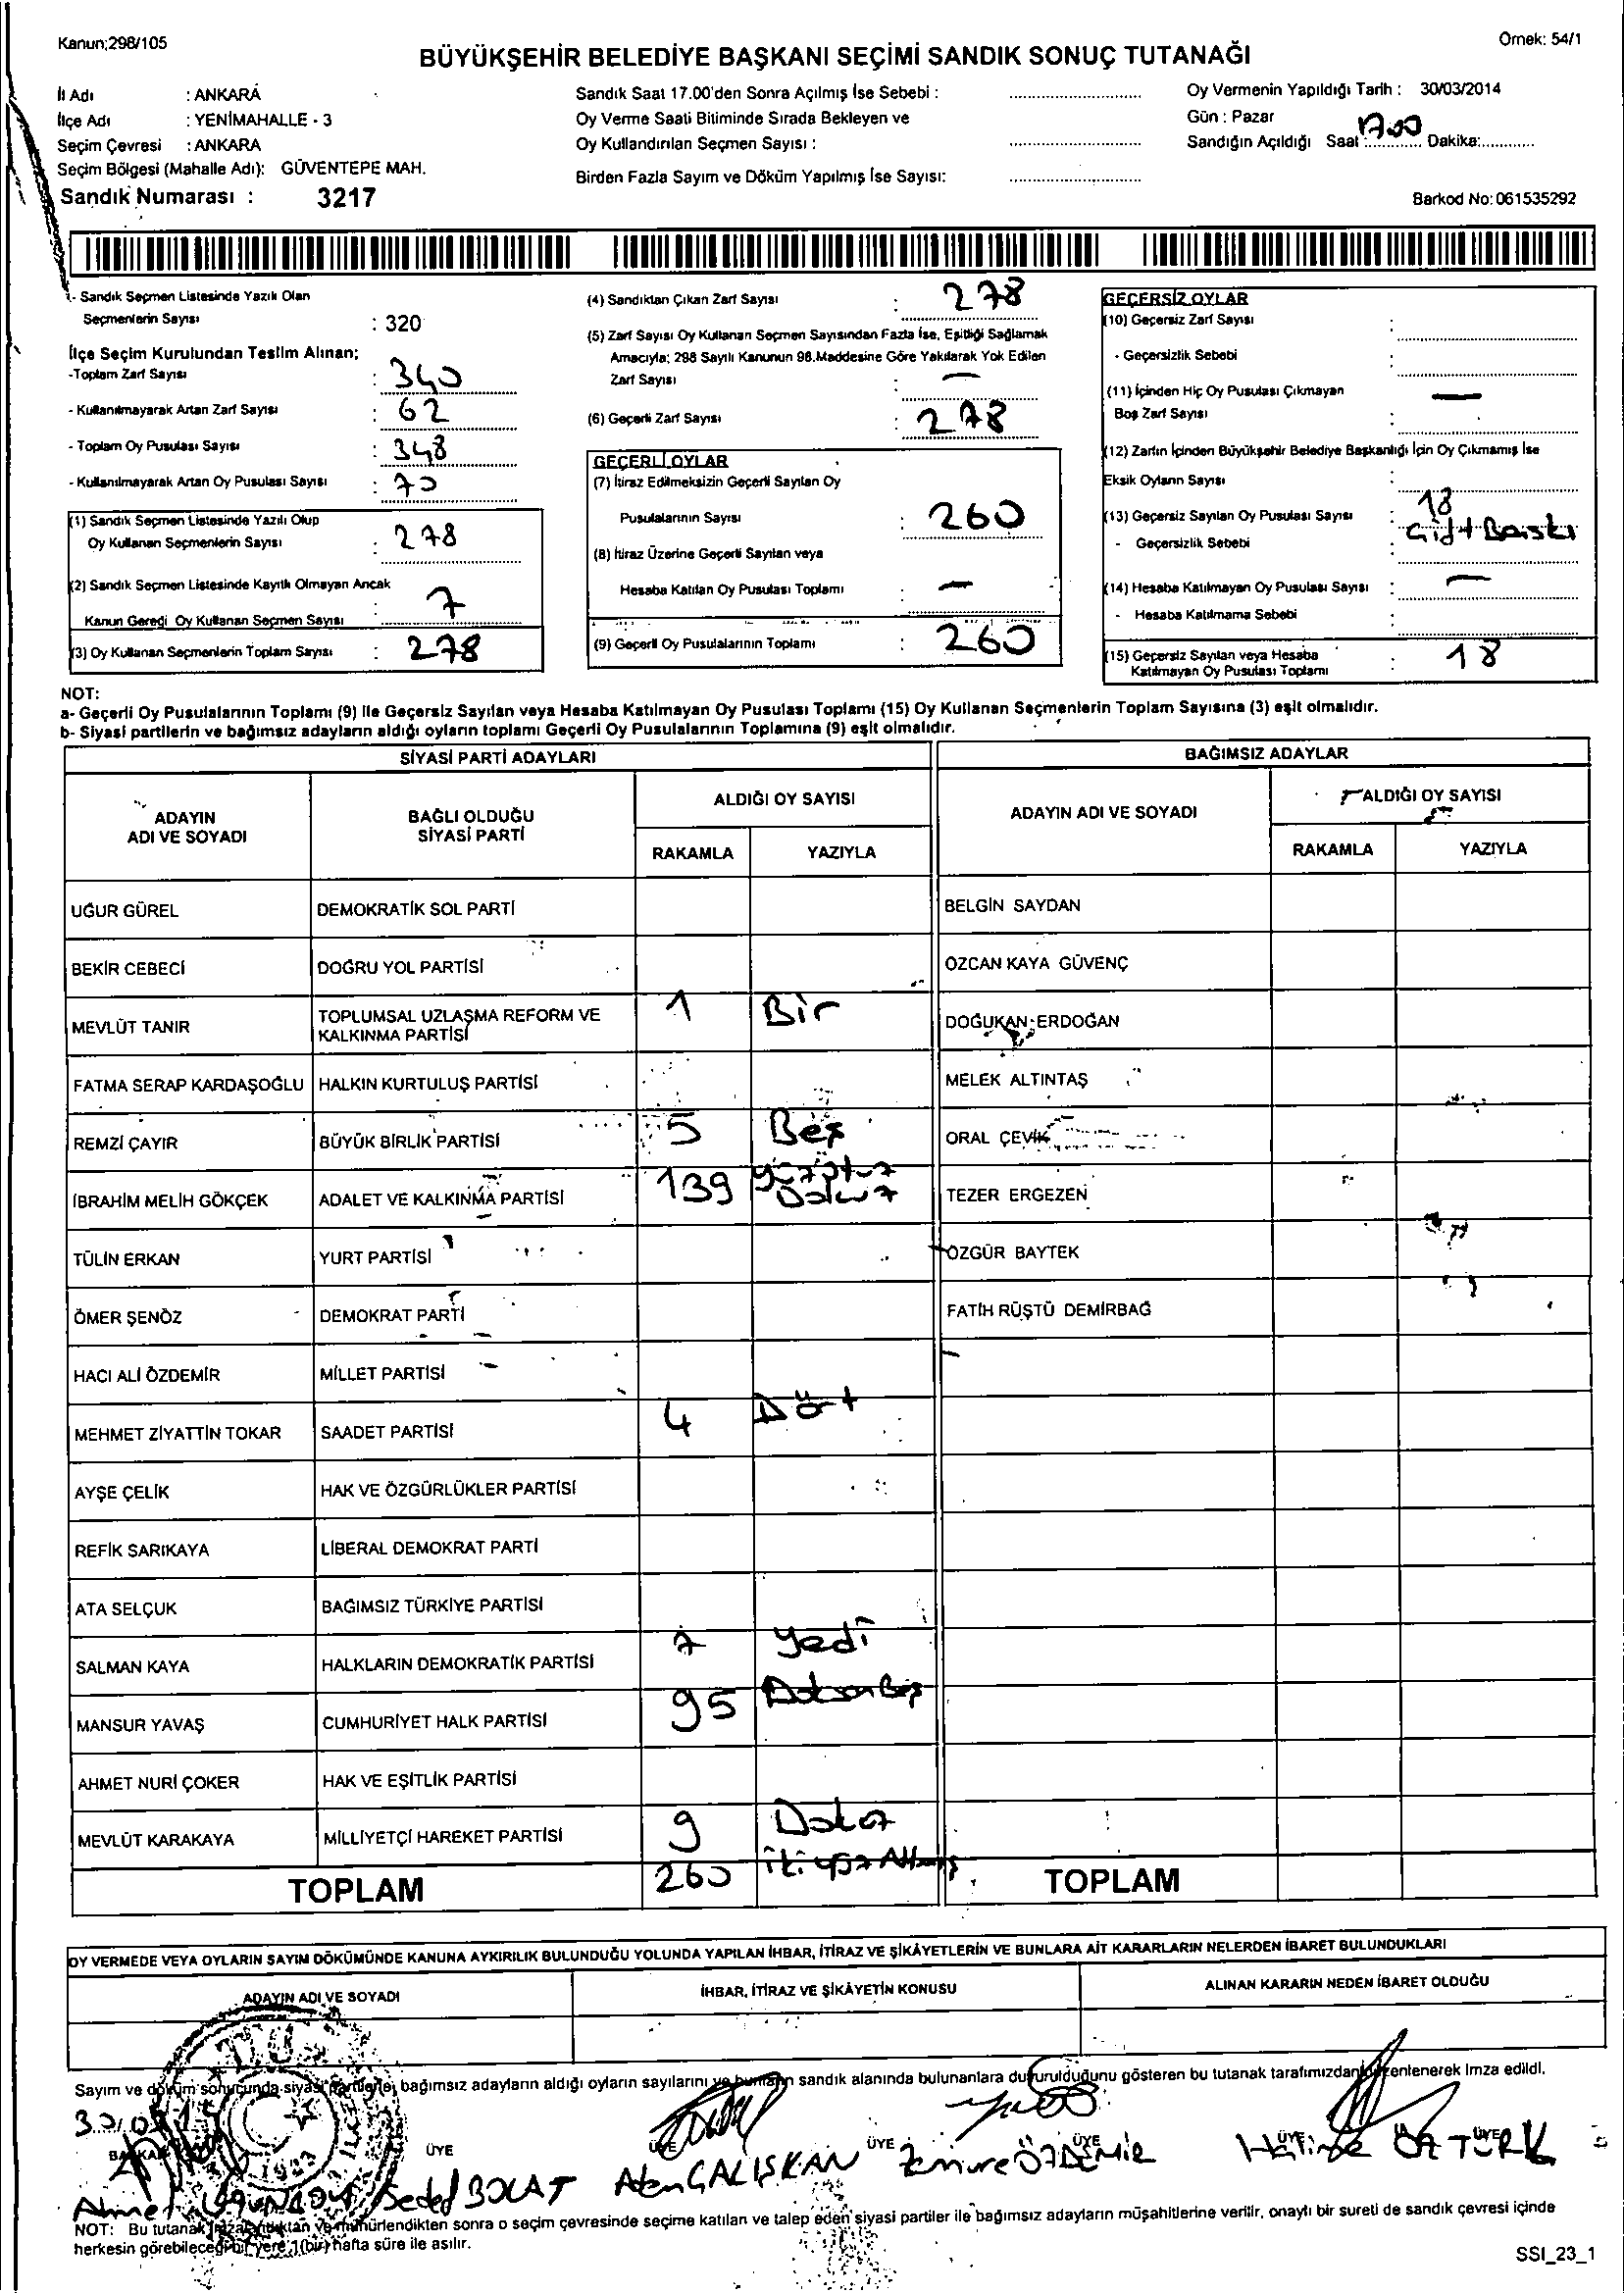 Kanun;298/105
Örnek: 54/1
BÜYÜKŞEHİR BELEDİYE BAŞKANI SEÇİMİ SANDIK SONUÇ TUTANAĞI
İl Adı : ANKARA
İlçe Adı : YENİMAHALLE - 3
Seçim Çevresi : ANKARA
Seçim Bölgesi (Mahalle Adı): GÜVENTEPE MAH.
Sandık Numarası : 3217
Sandık Saat 17.00'den Sonra Açılmış İse Sebebi :
Oy Verme Saati Bitiminde Sırada Bekleyen ve
Oy Kullandırılan Seçmen Sayısı :
Birden Fazla Sayım ve Döküm Yapılmış İse Sayısı:
Oy Vermenin Yapıldığı Tarih : 30/03/2014
Gün : Pazar
Sandığın Açıldığı Saat : 17.00 Dakika:
Barkod No: 061535292
- Sandık Seçmen Listesinde Yazılı Olan
Seçmenlerin Sayısı : 320
İlçe Seçim Kurulundan Teslim Alınan;
-Toplam Zarf Sayısı : 340
- Kullanılmayarak Artan Zarf Sayısı : 62
- Toplam Oy Pusulası Sayısı : 348
- Kullanılmayarak Artan Oy Pusulası Sayısı : 70
(1) Sandık Seçmen Listesinde Yazılı Olup
Oy Kullanan Seçmenlerin Sayısı : 278
(2) Sandık Seçmen Listesinde Kayıtlı Olmayan Ancak
Kanun Gereği Oy Kullanan Seçmen Sayısı : 7
(3) Oy Kullanan Seçmenlerin Toplam Sayısı : 278
(4) Sandıktan Çıkan Zarf Sayısı : 278
(5) Zarf Sayısı Oy Kullanan Seçmen Sayısından Fazla İse, Eşitliği Sağlamak
Amacıyla; 298 Sayılı Kanunun 98.Maddesine Göre Yakılarak Yok Edilen
Zarf Sayısı : —
(6) Geçerli Zarf Sayısı : 278
GEÇERLİ OYLAR
(7) İtiraz Edilmeksizin Geçerli Sayılan Oy
Pusulalarının Sayısı : 260
(8) İtiraz Üzerine Geçerli Sayılan veya
Hesaba Katılan Oy Pusulası Toplamı : —
(9) Geçerli Oy Pusulalarının Toplamı : 260
GEÇERSİZ OYLAR
(10) Geçersiz Zarf Sayısı :
- Geçersizlik Sebebi :
(11) İçinden Hiç Oy Pusulası Çıkmayan —
Boş Zarf Sayısı :
(12) Zarfın İçinden Büyükşehir Belediye Başkanlığı İçin Oy Çıkmamış İse
Eksik Oyların Sayısı :
(13) Geçersiz Sayılan Oy Pusulası Sayısı : 18
- Geçersizlik Sebebi : Çift Baskı
(14) Hesaba Katılmayan Oy Pusulası Sayısı : —
- Hesaba Katılmama Sebebi :
(15) Geçersiz Sayılan veya Hesaba
Katılmayan Oy Pusulası Toplamı : 18
NOT:
a- Geçerli Oy Pusulalarının Toplamı (9) ile Geçersiz Sayılan veya Hesaba Katılmayan Oy Pusulası Toplamı (15) Oy Kullanan Seçmenlerin Toplam Sayısına (3) eşit olmalıdır.
b- Siyasi partilerin ve bağımsız adayların aldığı oyların toplamı Geçerli Oy Pusulalarının Toplamına (9) eşit olmalıdır.
SİYASİ PARTİ ADAYLARI
BAĞIMSIZ ADAYLAR
ADAYIN
ADI VE SOYADI
BAĞLI OLDUĞU
SİYASİ PARTİ
ALDIĞI OY SAYISI
RAKAMLA YAZIYLA
ADAYIN ADI VE SOYADI
ALDIĞI OY SAYISI
RAKAMLA YAZIYLA
UĞUR GÜREL DEMOKRATİK SOL PARTİ BELGİN SAYDAN
BEKİR CEBECİ DOĞRU YOL PARTİSİ ÖZCAN KAYA GÜVENÇ
MEVLÜT TANIR TOPLUMSAL UZLAŞMA REFORM VE KALKINMA PARTİSİ 1 Bir DOĞUKAN ERDOĞAN
FATMA SERAP KARDAŞOĞLU HALKIN KURTULUŞ PARTİSİ MELEK ALTINTAŞ
REMZİ ÇAYIR BÜYÜK BİRLİK PARTİSİ 5 Beş ORAL ÇEVİK
İBRAHİM MELİH GÖKÇEK ADALET VE KALKINMA PARTİSİ 139 yüzotuz Dokuz TEZER ERGEZEN
TÜLİN ERKAN YURT PARTİSİ ÖZGÜR BAYTEK
ÖMER ŞENÖZ DEMOKRAT PARTİ FATİH RÜŞTÜ DEMİRBAĞ
HACI ALİ ÖZDEMİR MİLLET PARTİSİ
MEHMET ZİYATTİN TOKAR SAADET PARTİSİ 4 Dört
AYŞE ÇELİK HAK VE ÖZGÜRLÜKLER PARTİSİ
REFİK SARIKAYA LİBERAL DEMOKRAT PARTİ
ATA SELÇUK BAĞIMSIZ TÜRKİYE PARTİSİ
SALMAN KAYA HALKLARIN DEMOKRATİK PARTİSİ 7 yedi
MANSUR YAVAŞ CUMHURİYET HALK PARTİSİ 95 Doksan Beş
AHMET NURİ ÇOKER HAK VE EŞİTLİK PARTİSİ
MEVLÜT KARAKAYA MİLLİYETÇİ HAREKET PARTİSİ 9 Dokuz
TOPLAM 260 iki yüz Altmış TOPLAM
OY VERMEDE VEYA OYLARIN SAYIM DÖKÜMÜNDE KANUNA AYKIRILIK BULUNDUĞU YOLUNDA YAPILAN İHBAR, İTİRAZ VE ŞİKÂYETLERİN VE BUNLARA AİT KARARLARIN NELERDEN İBARET BULUNDUKLARI
ADAYIN ADI VE SOYADI İHBAR, İTİRAZ VE ŞİKÂYETİN KONUSU ALINAN KARARIN NEDEN İBARET OLDUĞU
Sayım ve döküm sonucunda siyasi partilerle, bağımsız adayların aldığı oyların sayılarını ve bunların sandık alanında bulunanlara duyurulduğunu gösteren bu tutanak tarafımızdan düzenlenerek imza edildi.
BAŞKAN ÜYE ÜYE ÜYE ÜYE ÜYE ÜYE
Ahmet Sedef BOLAT ÇALIŞKAN ÖZDEMİR Halime ÖZTÜRK
NOT: Bu tutanak imzalandıktan ve mühürlendikten sonra o seçim çevresinde seçime katılan ve talep eden siyasi partiler ile bağımsız adayların müşahitlerine verilir, onaylı bir sureti de sandık çevresi içinde
herkesin görebileceği bir yere 1(bir) hafta süre ile asılır.
SSI_23_1